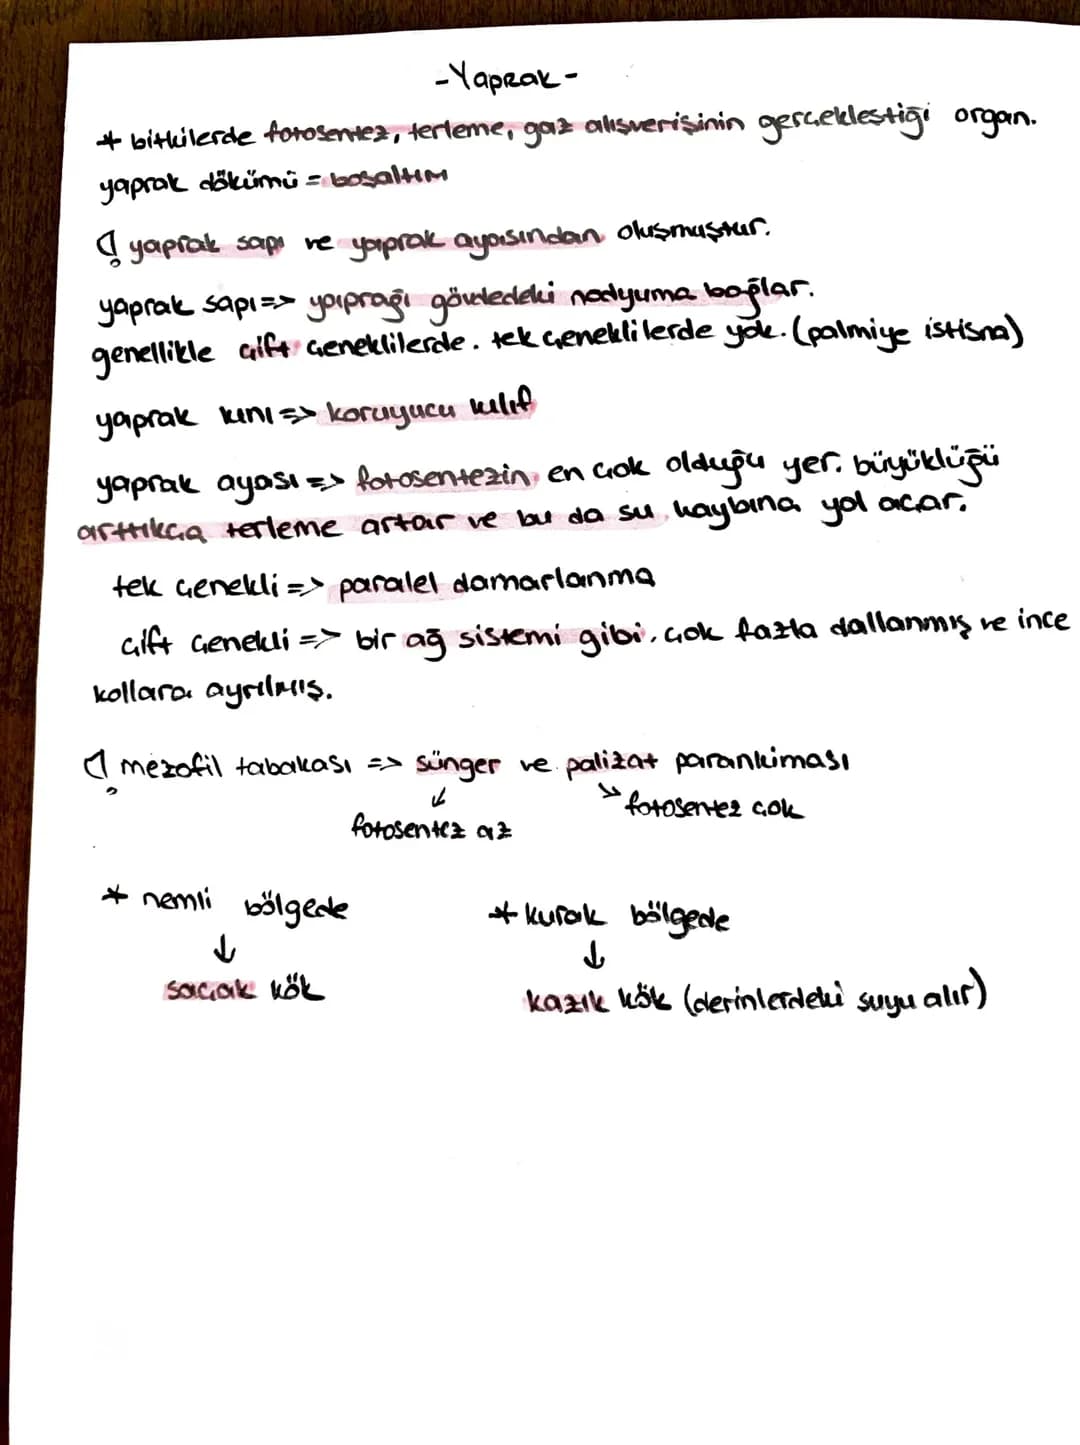 -Yaprak-
* bitkilerde fotosentez, terleme, gaz alışverişinin gerçekleştiği organ.
yaprak dökümü = boşaltım
yaprak sapı ve yaprak ayasından oluşmuştur.
yaprak sapı => yaprağı gövdedeki nodyuma bağlar.
genellikle çift çeneklilerde. tek çeneklilerde yok. (palmiye istisna)
yaprak kını => koruyucu kılıf
yaprak ayası => fotosentezin en çok olduğu yer. büyüklüğü
arttıkça terleme artar ve bu da su kaybına yol açar.
tek çenekli => paralel damarlanma
çift çenekli => bir ağ sistemi gibi. çok fazla dallanmış ve ince
kollara ayrılmış.
mezofil tabakası => sünger ve palizat parankiması
fotosentez az
fotosentez çok
* nemli bölgede
* kurak bölgede
↓
↓
saçak kök
kazık kök (derinlerdeki suyu alır)